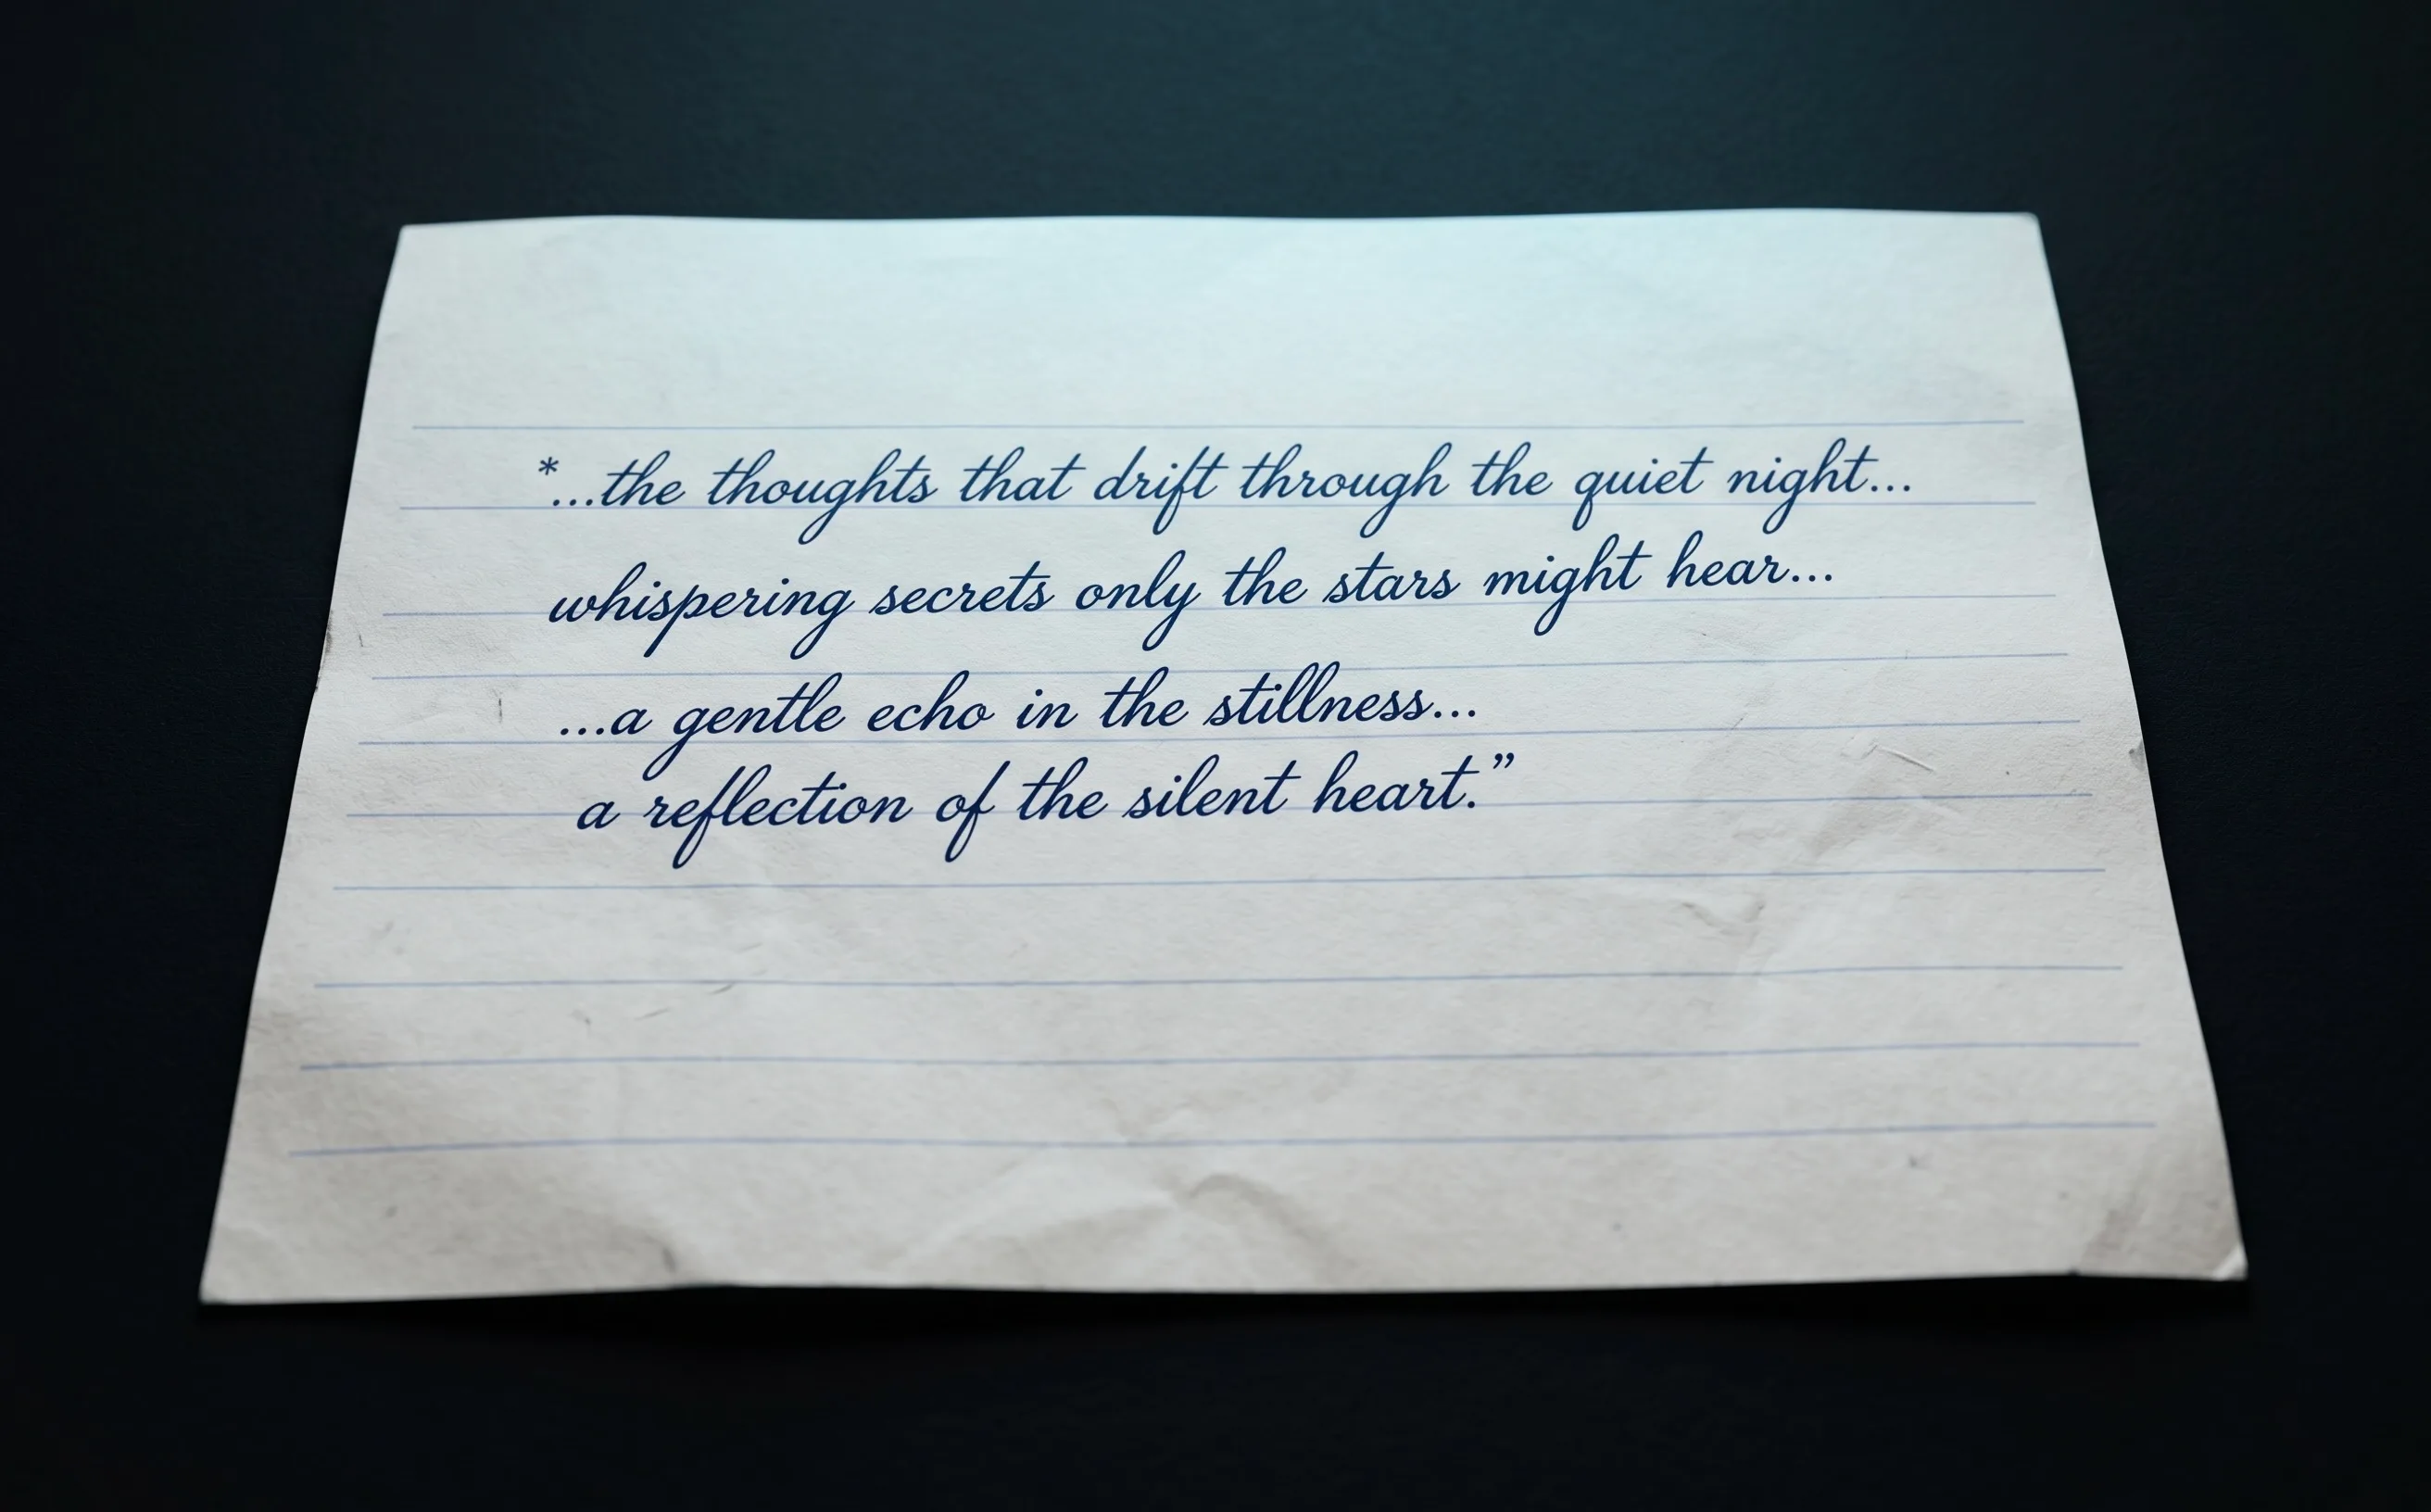 *...the thoughts that drift through the quiet night...
whispering secrets only the stars might hear...
...a gentle echo in the stillness...
a reflection of the silent heart.”